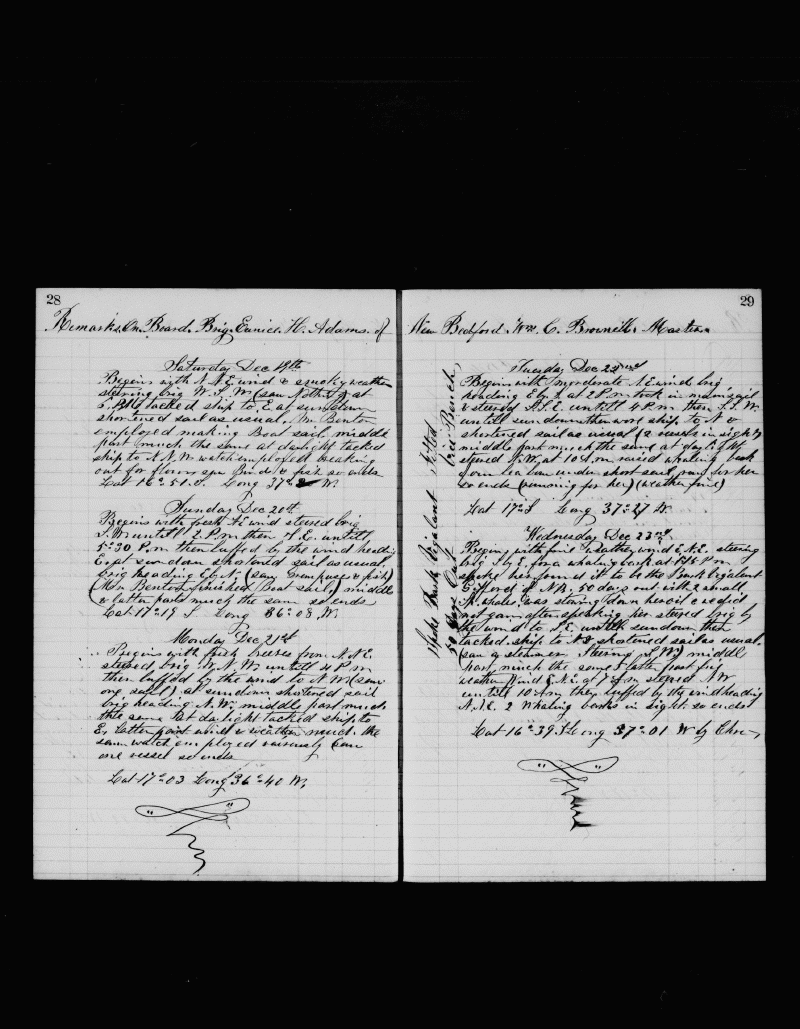 28
Remarks On Board. Brig. Eunice. H. Adams. of
Saturday Dec 19th
Begins with N N E wind & smoky weather
steering brig W. S. W. (saw at
tacked ship to E. at sundown
shortened sail as usual, Mr Benton
employed making Boat sail, middle
part much the same at daylight tacked
ship to N N W watch employed breaking
out for flour saw Birds & fish so ends
Lat 16°51. S. Long 37° W.
Sunday Dec 20th
Begins with fresh N E wind steered brig
S. W untill 2. P. m then S. E. untill
5=30 P. m then luffed by the wind heading
E. at sundown shortened sail as usual
brig heading E by N. (saw & fish)
(Mr. Benton finished Boat sail,) middle
& latter parts much the same so ends
Lat. 17=19 S Long 36=08 W.
Monday Dec 21st
Begins with fresh breeze from N. N E.
steered brig W. N. W. untill 4 P m
then luffed by the wind to N W (saw
one sail) at sundown shortened sail
brig heading N. W. middle part much
the same at daylight tacked ship to
E, latter part wind & weather much the
same watch employed variously saw
one vessel so ends
Lat 17=03 Long 36=40 W.
29
New Bedford. Wm. C. Brownell. Master.
Tuesday Dec 22nd
Begins with moderate N. E wind brig
heading E by N at 2 P m took in mainsail
& steered S. S E. untill 4 P m then S. S. W
untill sundown then wore ship to N &
shortened sail as usual (2 vessels in sight)
middle part much the same at daylight
steered N. W. at 10 A. m raised whaling bark
down to leeward under short sail, run for her
so ends (running for her) (weather fine)
Lat 17=S Long 37=27 W.
Wednesday Dec 23rd
Begins with fine weather, wind E. N. E. steering
brig S by E. for a whaling bark at 1=15 P m
spoke her found it to be the Bark Vigalant
Gifford of N. B. 50 days out with 2 small
S. whales, was
not gam after speaking her steered brig by
the wind to S. E. untill sundown then
tacked ship to N & shortened sail as usual.
(saw a steamer Steering S W) middle
part much the same latter part fine
weather wind E. N. E. at 7 A m steered N W
untill 10 A m then luffed by the wind heading
N. N. E. 2 Whaling barks in sight. so ends
Lat 16=39. S Long 37=01 W by Chro
Spoke Bark Vigalant
50 days Out